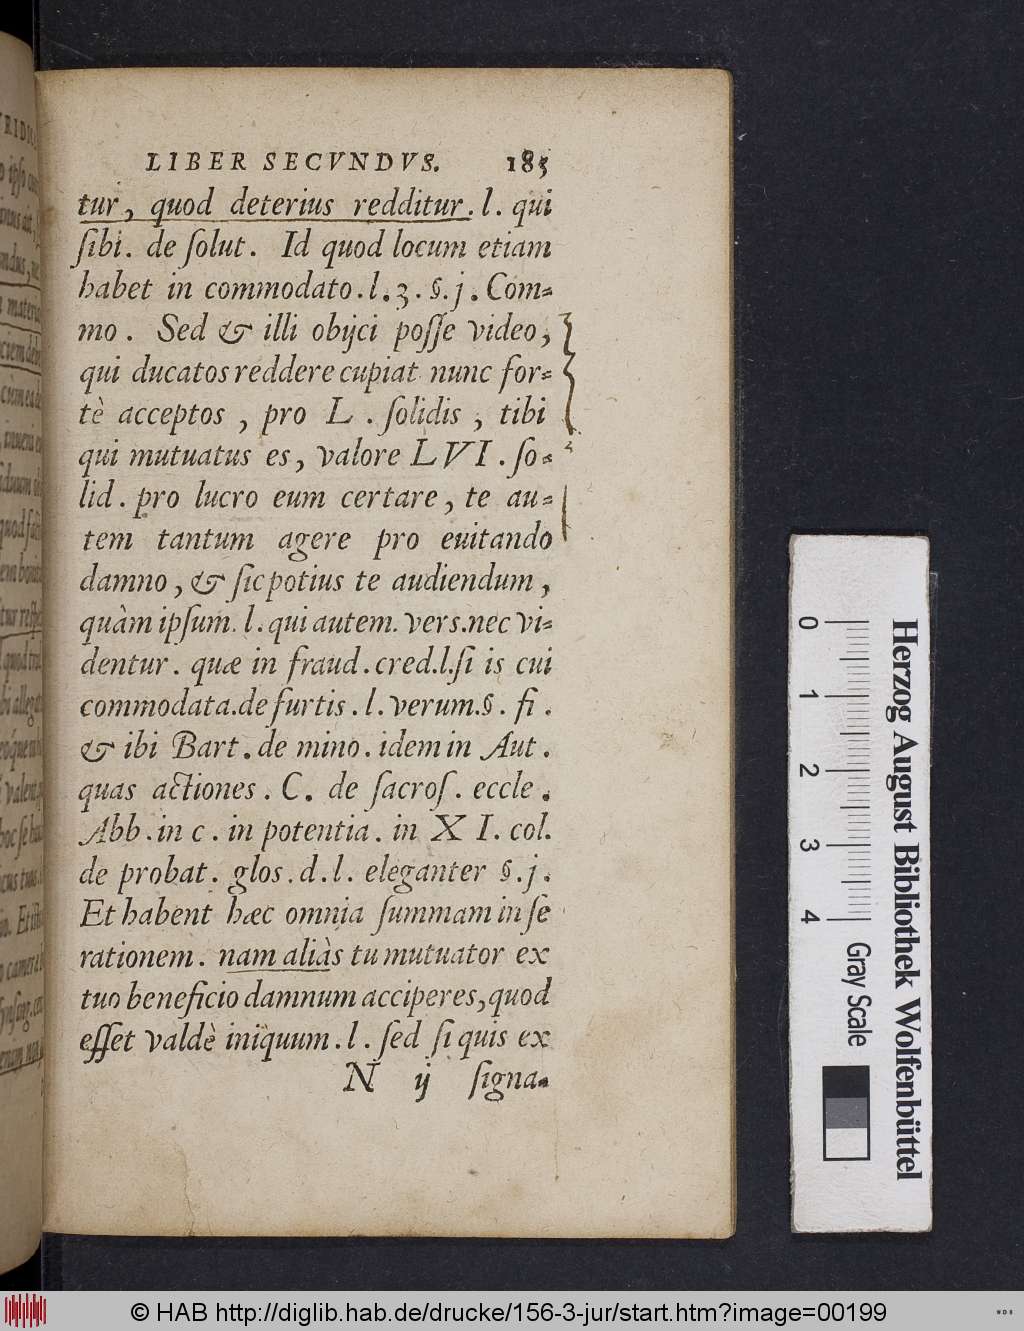 LIBER SECVNDVS. 185
tur, quod deterius redditur. l. qui
ſibi. de ſolut. Id quod locum etiam
habet in commodato. l. 3. §. j. Com-
mo. Sed & illi obijci poſſe video,
qui ducatos reddere cupiat nunc for-
tè acceptos, pro L. ſolidis, tibi
qui mutuatus es, valore LVI. ſo-
lid. pro lucro eum certare, te au-
tem tantum agere pro euitando
damno, & ſic potius te audiendum,
quàm ipſum. l. qui autem. vers. nec vi-
dentur. quæ in fraud. cred. l. ſi is cui
commodata. de furtis. l. verum. §. fi.
& ibi Bart. de mino. idem in Aut.
quas actiones. C. de ſacroſ. eccle.
Abb. in c. in potentia. in XI. col.
de probat. glos. d. l. eleganter §. j.
Et habent hæc omnia ſummam in ſe
rationem. nam aliàs tu mutuator ex
tuo beneficio damnum acciperes, quod
eſſet valdè iniquum. l. ſed ſi quis ex
N ij ſigna-
0 1 2 3 4 Gray Scale
Herzog August Bibliothek Wolfenbüttel
© HAB http://diglib.hab.de/drucke/156-3-jur/start.htm?image=00199